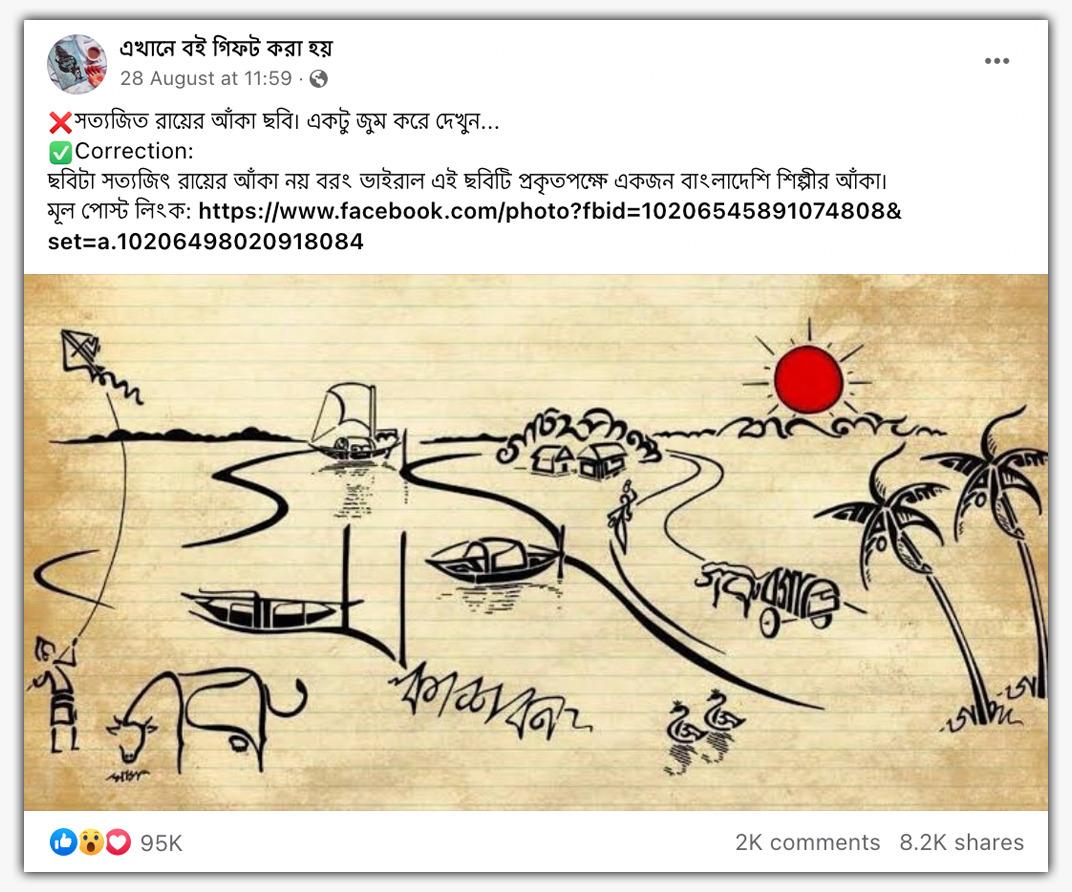 এখানে বই গিফট করা হয়
28 August at 11:59 ·
❌সত্যজিত রায়ের আঁকা ছবি। একটু জুম করে দেখুন...
✅Correction:
ছবিটা সত্যজিৎ রায়ের আঁকা নয় বরং ভাইরাল এই ছবিটি প্রকৃতপক্ষে একজন বাংলাদেশি শিল্পীর আঁকা।
মূল পোস্ট লিংক: https://www.facebook.com/photo?fbid=10206545891074808&
set=a.10206498020918084
কাশবন
95K
2K comments 8.2K shares